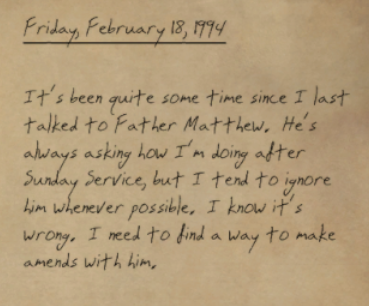 Friday, February 18, 1994
It's been quite some time since I last
talked to Father Matthew. He's
always asking how I'm doing after
Sunday Service, but I tend to ignore
him whenever possible. I know it's
wrong. I need to find a way to make
amends with him.